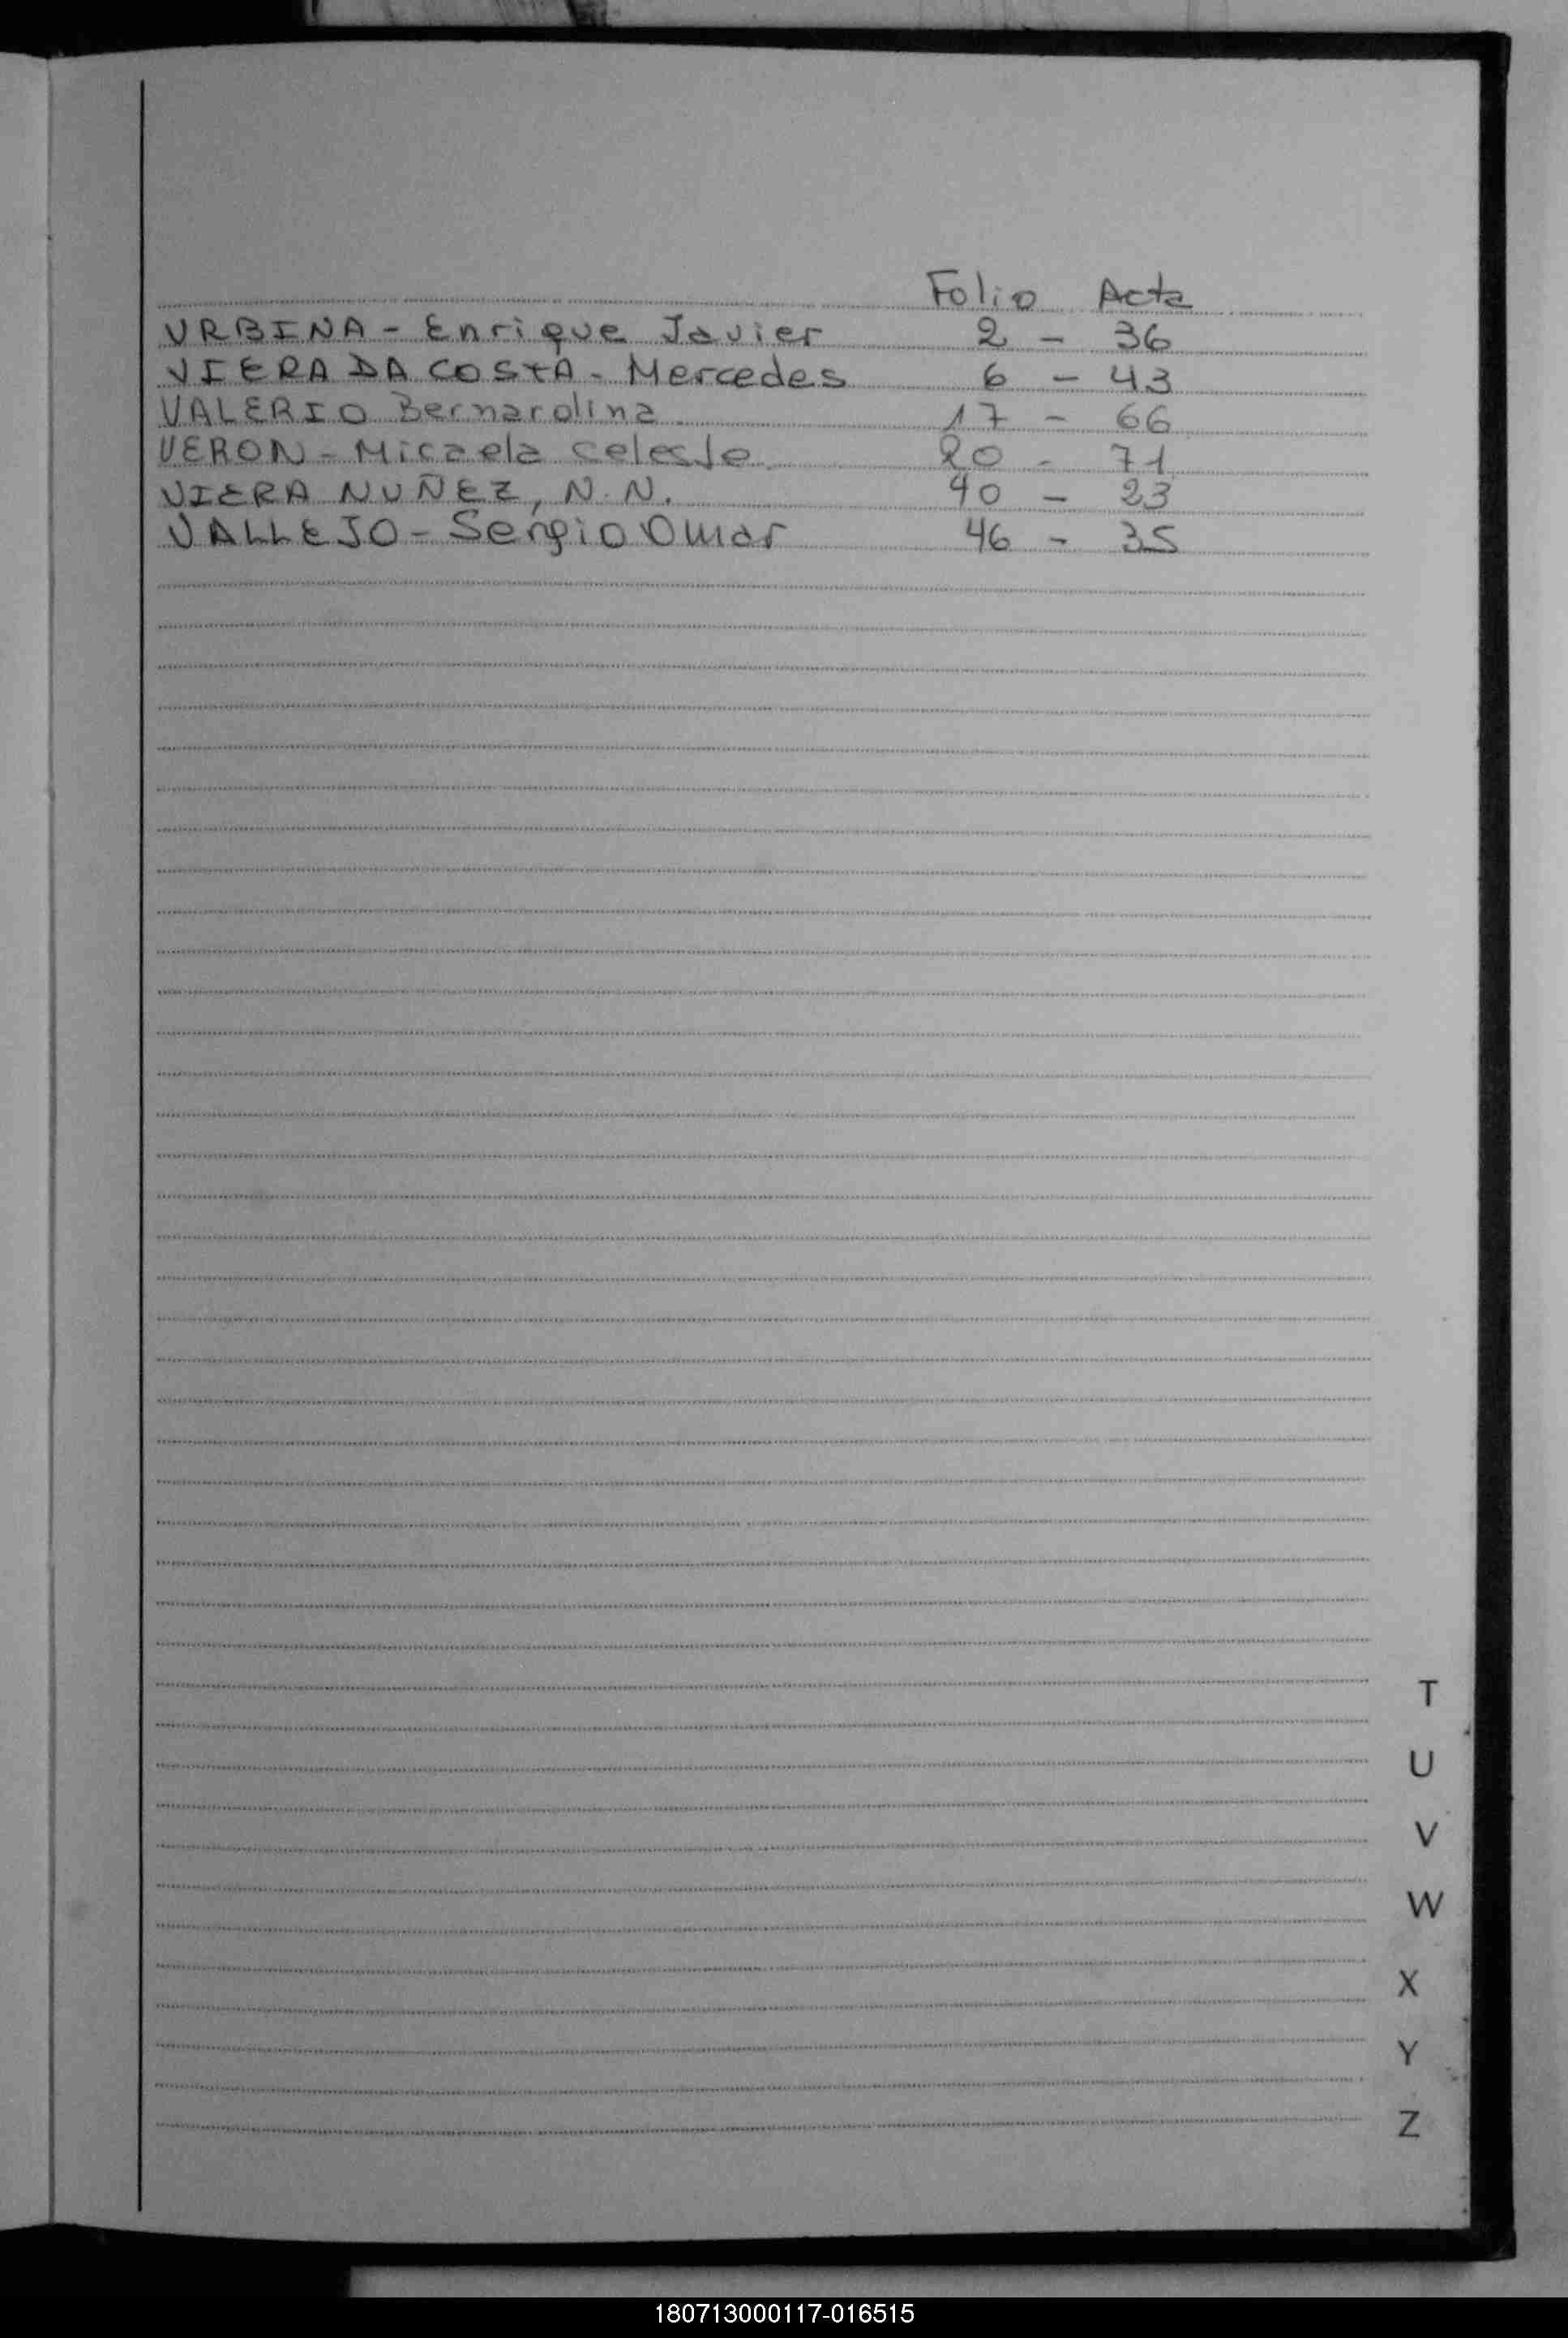 Folio Acta
URBINA - Enrique Javier 2 - 36
VIERA DA COSTA - Mercedes 6 - 43
VALERIO Bernardina 17 - 66
VERON - Micaela Celeste 20 - 71
VIERA NUÑEZ, N.N. 40 - 23
VALLEJO - Sergio Omar 46 - 35
T
U
V
W
X
Y
Z
180713000117-016515